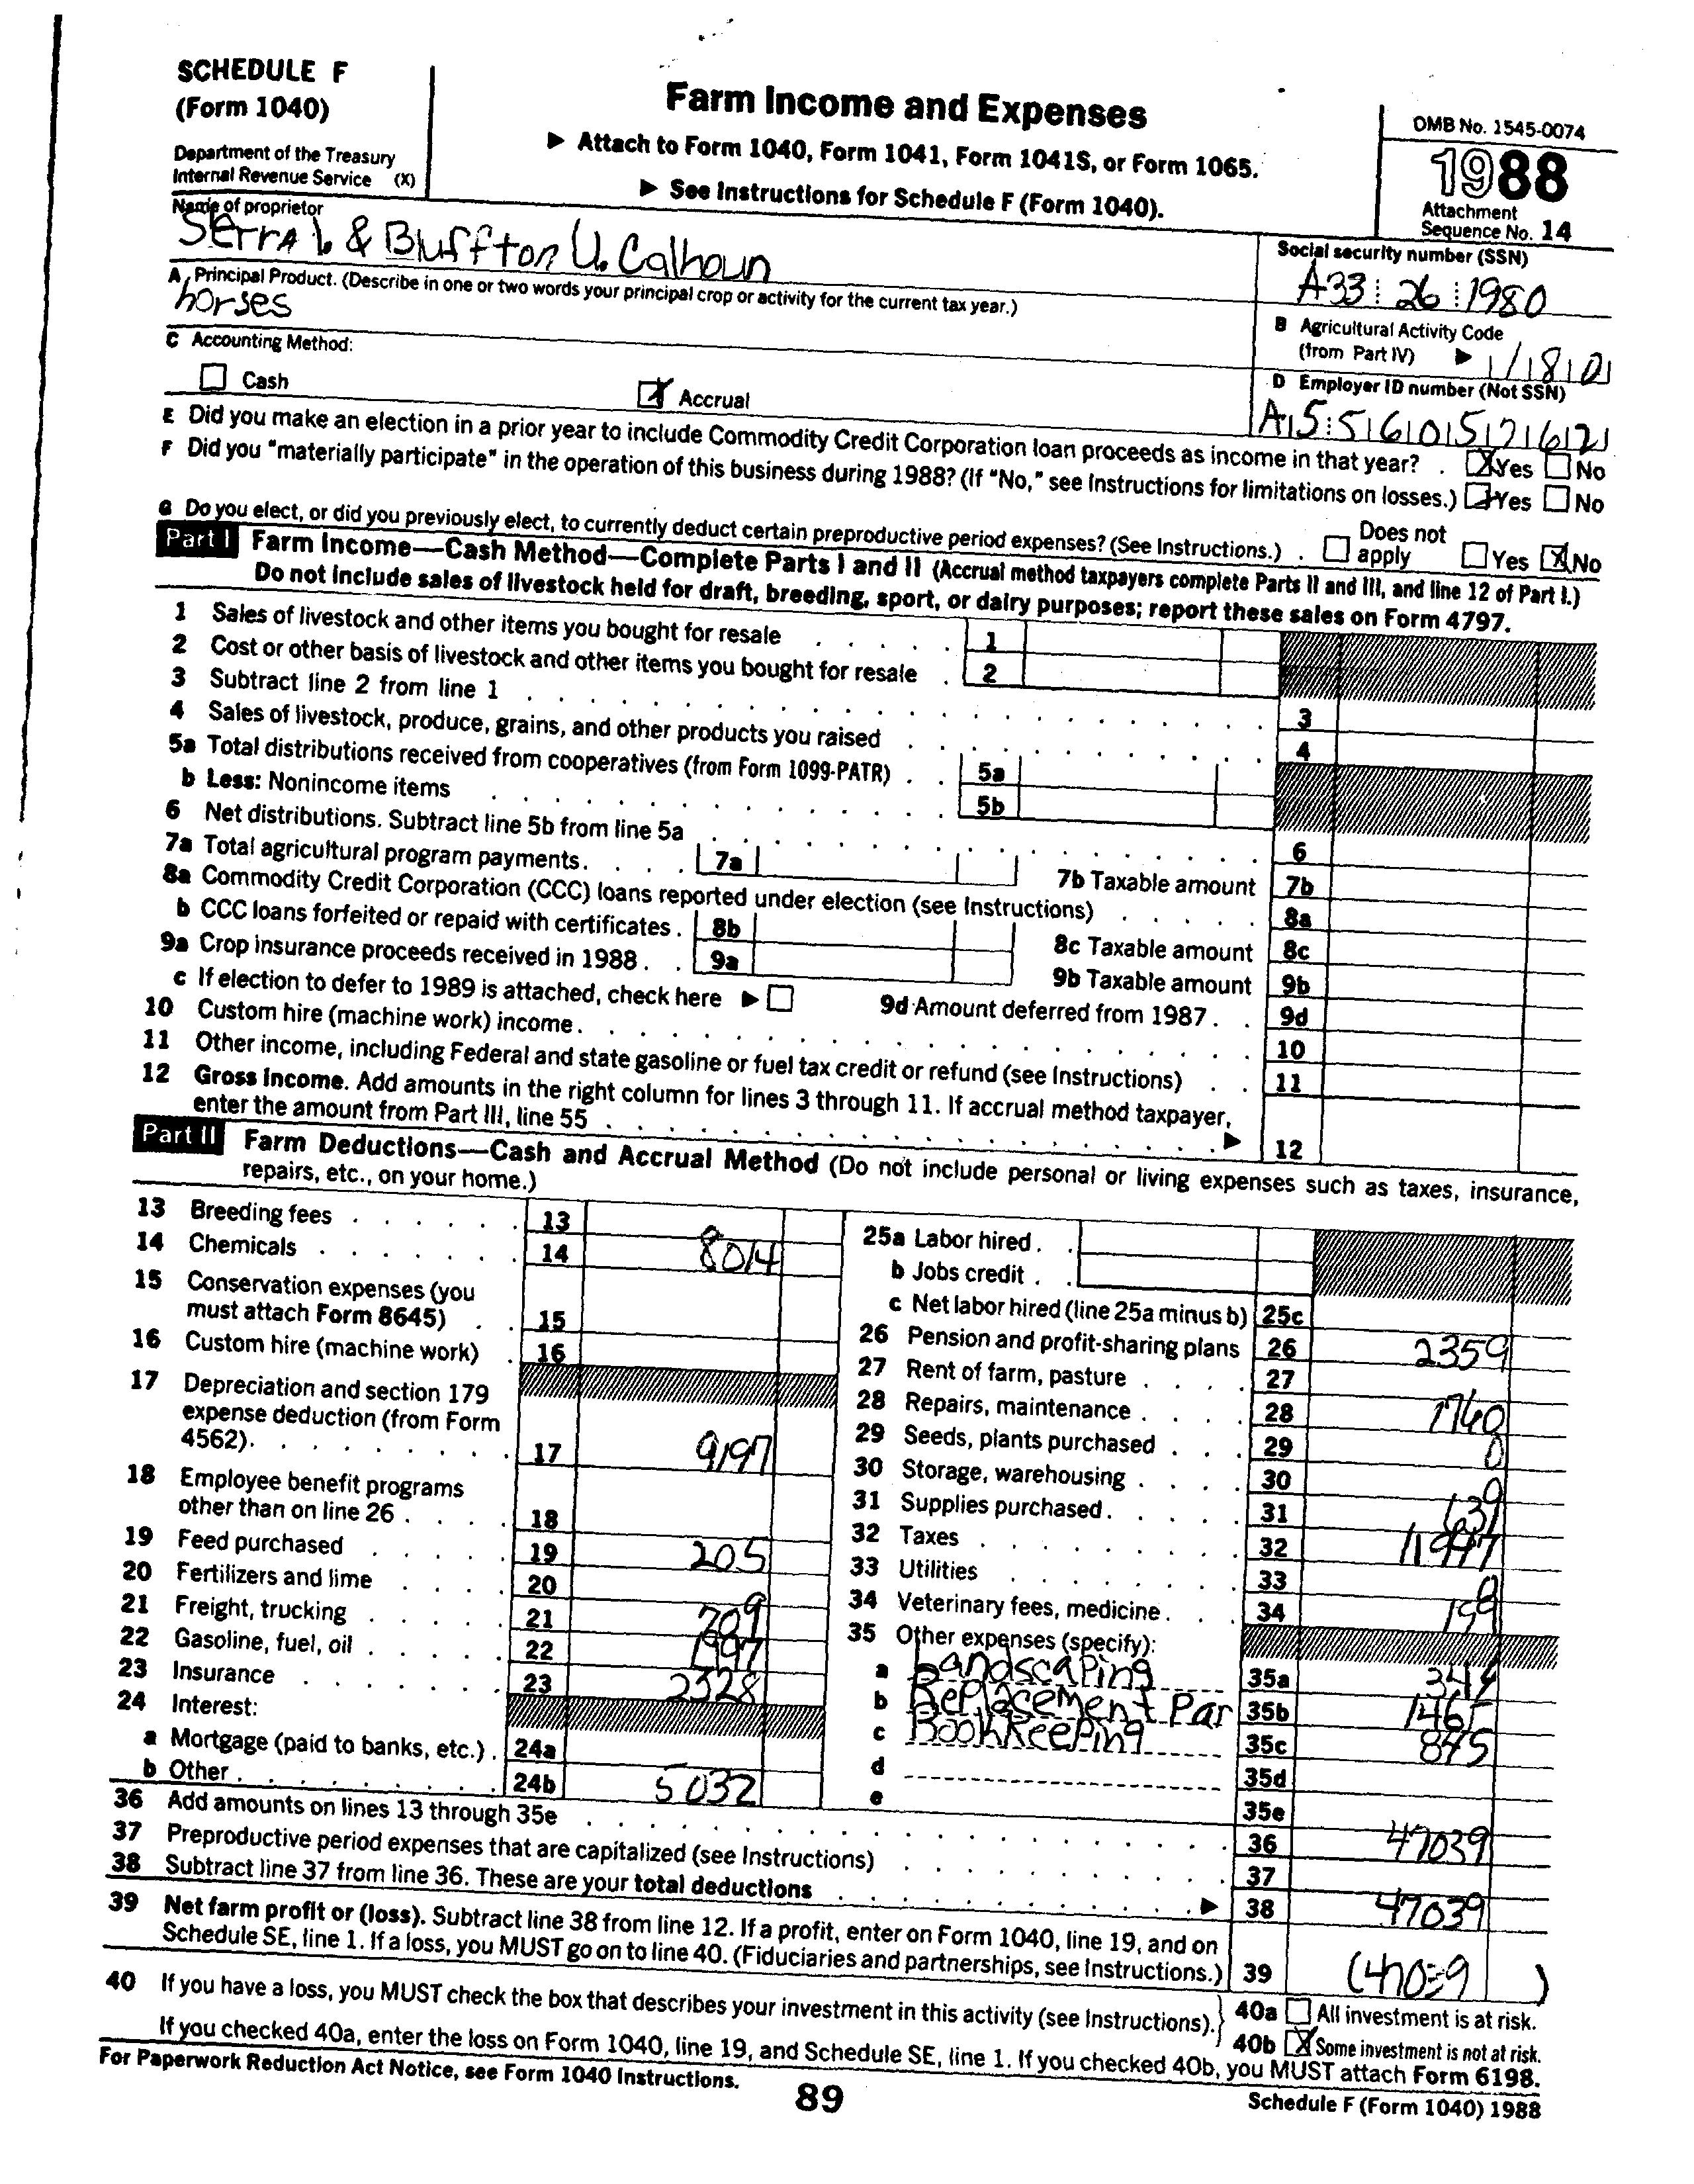 SCHEDULE F
(Form 1040)
Department of the Treasury
Internal Revenue Service (X)
Farm Income and Expenses
▶ Attach to Form 1040, Form 1041, Form 1041S, or Form 1065.
▶ See Instructions for Schedule F (Form 1040).
OMB No. 1545-0074
1988
Attachment
Sequence No. 14
Name of proprietor
Serra L. & Bluffton U. Calhoun
Social security number (SSN)
A33 26 1980
A Principal Product. (Describe in one or two words your principal crop or activity for the current tax year.)
horses
B Agricultural Activity Code
(from Part IV) ▶
C Accounting Method:
Cash
Accrual
D Employer ID number (Not SSN)
E Did you make an election in a prior year to include Commodity Credit Corporation loan proceeds as income in that year? . X Yes No
F Did you "materially participate" in the operation of this business during 1988? (If "No," see Instructions for limitations on losses.) Yes No
G Do you elect, or did you previously elect, to currently deduct certain preproductive period expenses? (See Instructions.) . Does not apply Yes X No
Part I Farm Income—Cash Method—Complete Parts I and II (Accrual method taxpayers complete Parts II and III, and line 12 of Part I.)
Do not include sales of livestock held for draft, breeding, sport, or dairy purposes; report these sales on Form 4797.
1 Sales of livestock and other items you bought for resale 1
2 Cost or other basis of livestock and other items you bought for resale 2
3 Subtract line 2 from line 1 3
4 Sales of livestock, produce, grains, and other products you raised 4
5a Total distributions received from cooperatives (from Form 1099-PATR) 5a
b Less: Nonincome items 5b
6 Net distributions. Subtract line 5b from line 5a 6
7a Total agricultural program payments. 7a 7b Taxable amount 7b
8a Commodity Credit Corporation (CCC) loans reported under election (see Instructions) 8a
b CCC loans forfeited or repaid with certificates . 8b 8c Taxable amount 8c
9a Crop insurance proceeds received in 1988 . 9a 9b Taxable amount 9b
c If election to defer to 1989 is attached, check here ▶ 9d Amount deferred from 1987 . 9d
10 Custom hire (machine work) income. 10
11 Other income, including Federal and state gasoline or fuel tax credit or refund (see Instructions) 11
12 Gross Income. Add amounts in the right column for lines 3 through 11. If accrual method taxpayer,
enter the amount from Part III, line 55 ▶ 12
Part II Farm Deductions—Cash and Accrual Method (Do not include personal or living expenses such as taxes, insurance,
repairs, etc., on your home.)
13 Breeding fees 13
14 Chemicals 14 8014
15 Conservation expenses (you
must attach Form 8645) 15
16 Custom hire (machine work) 16
17 Depreciation and section 179
expense deduction (from Form
4562). 17 9197
18 Employee benefit programs
other than on line 26 18
19 Feed purchased 19 205
20 Fertilizers and lime 20
21 Freight, trucking 21 709
22 Gasoline, fuel, oil 22
23 Insurance 23 2328
24 Interest:
a Mortgage (paid to banks, etc.) . 24a
b Other 24b 5032
25a Labor hired .
b Jobs credit .
c Net labor hired (line 25a minus b) 25c
26 Pension and profit-sharing plans 26 2359
27 Rent of farm, pasture 27
28 Repairs, maintenance 28 1760
29 Seeds, plants purchased 29 0
30 Storage, warehousing 30
31 Supplies purchased. 31 139
32 Taxes 32
33 Utilities 33
34 Veterinary fees, medicine. 34
35 Other expenses (specify):
a Landscaping 35a 344
b Replacement Par 35b 1465
c Bookkeeping 35c 845
d 35d
e 35e
36 Add amounts on lines 13 through 35e 36 47039
37 Preproductive period expenses that are capitalized (see Instructions) 37
38 Subtract line 37 from line 36. These are your total deductions ▶ 38 47039
39 Net farm profit or (loss). Subtract line 38 from line 12. If a profit, enter on Form 1040, line 19, and on
Schedule SE, line 1. If a loss, you MUST go on to line 40. (Fiduciaries and partnerships, see Instructions.) 39 (47039)
40 If you have a loss, you MUST check the box that describes your investment in this activity (see Instructions). 40a All investment is at risk.
40b X Some investment is not at risk.
If you checked 40a, enter the loss on Form 1040, line 19, and Schedule SE, line 1. If you checked 40b, you MUST attach Form 6198.
For Paperwork Reduction Act Notice, see Form 1040 Instructions.
89
Schedule F (Form 1040) 1988